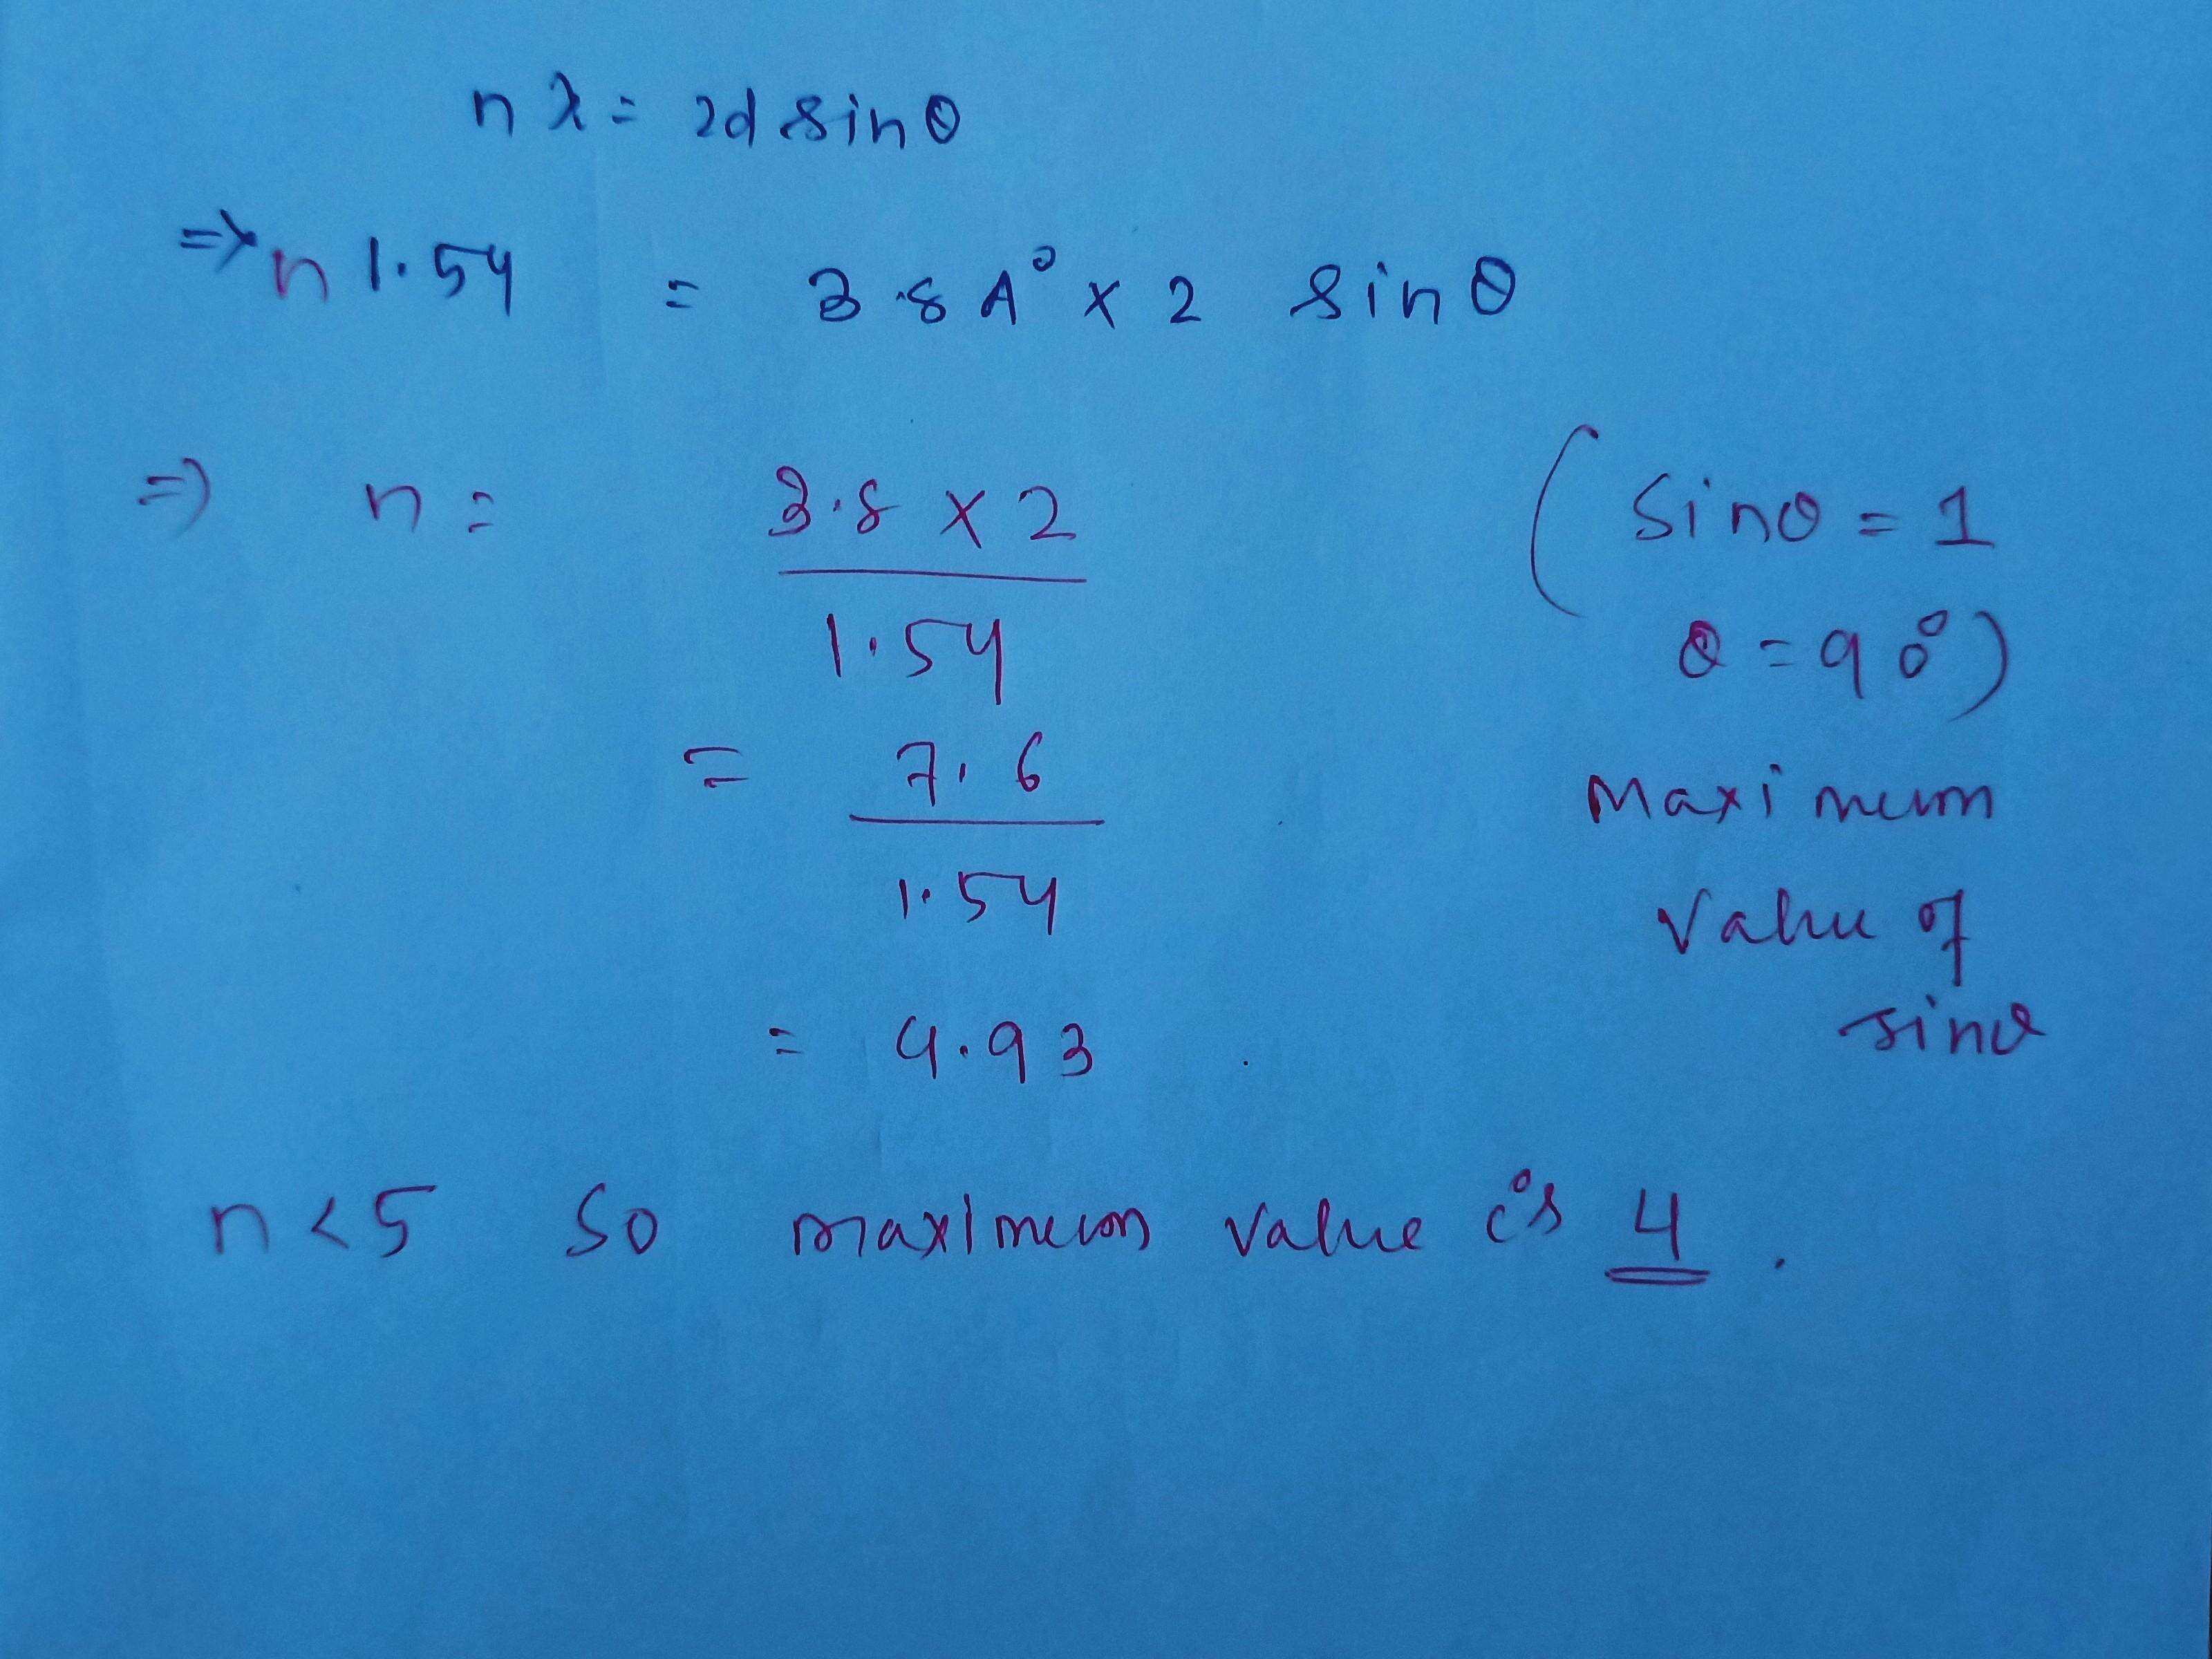 nλ = 2d sinθ
=> n 1.54 = 3.8 A° x 2 sinθ
=> n = 3.8 x 2 / 1.54 (sinθ = 1
θ = 90°)
= 7.6 / 1.54 Maximum
value of
sinθ
= 4.93
n < 5 So maximum value is 4.